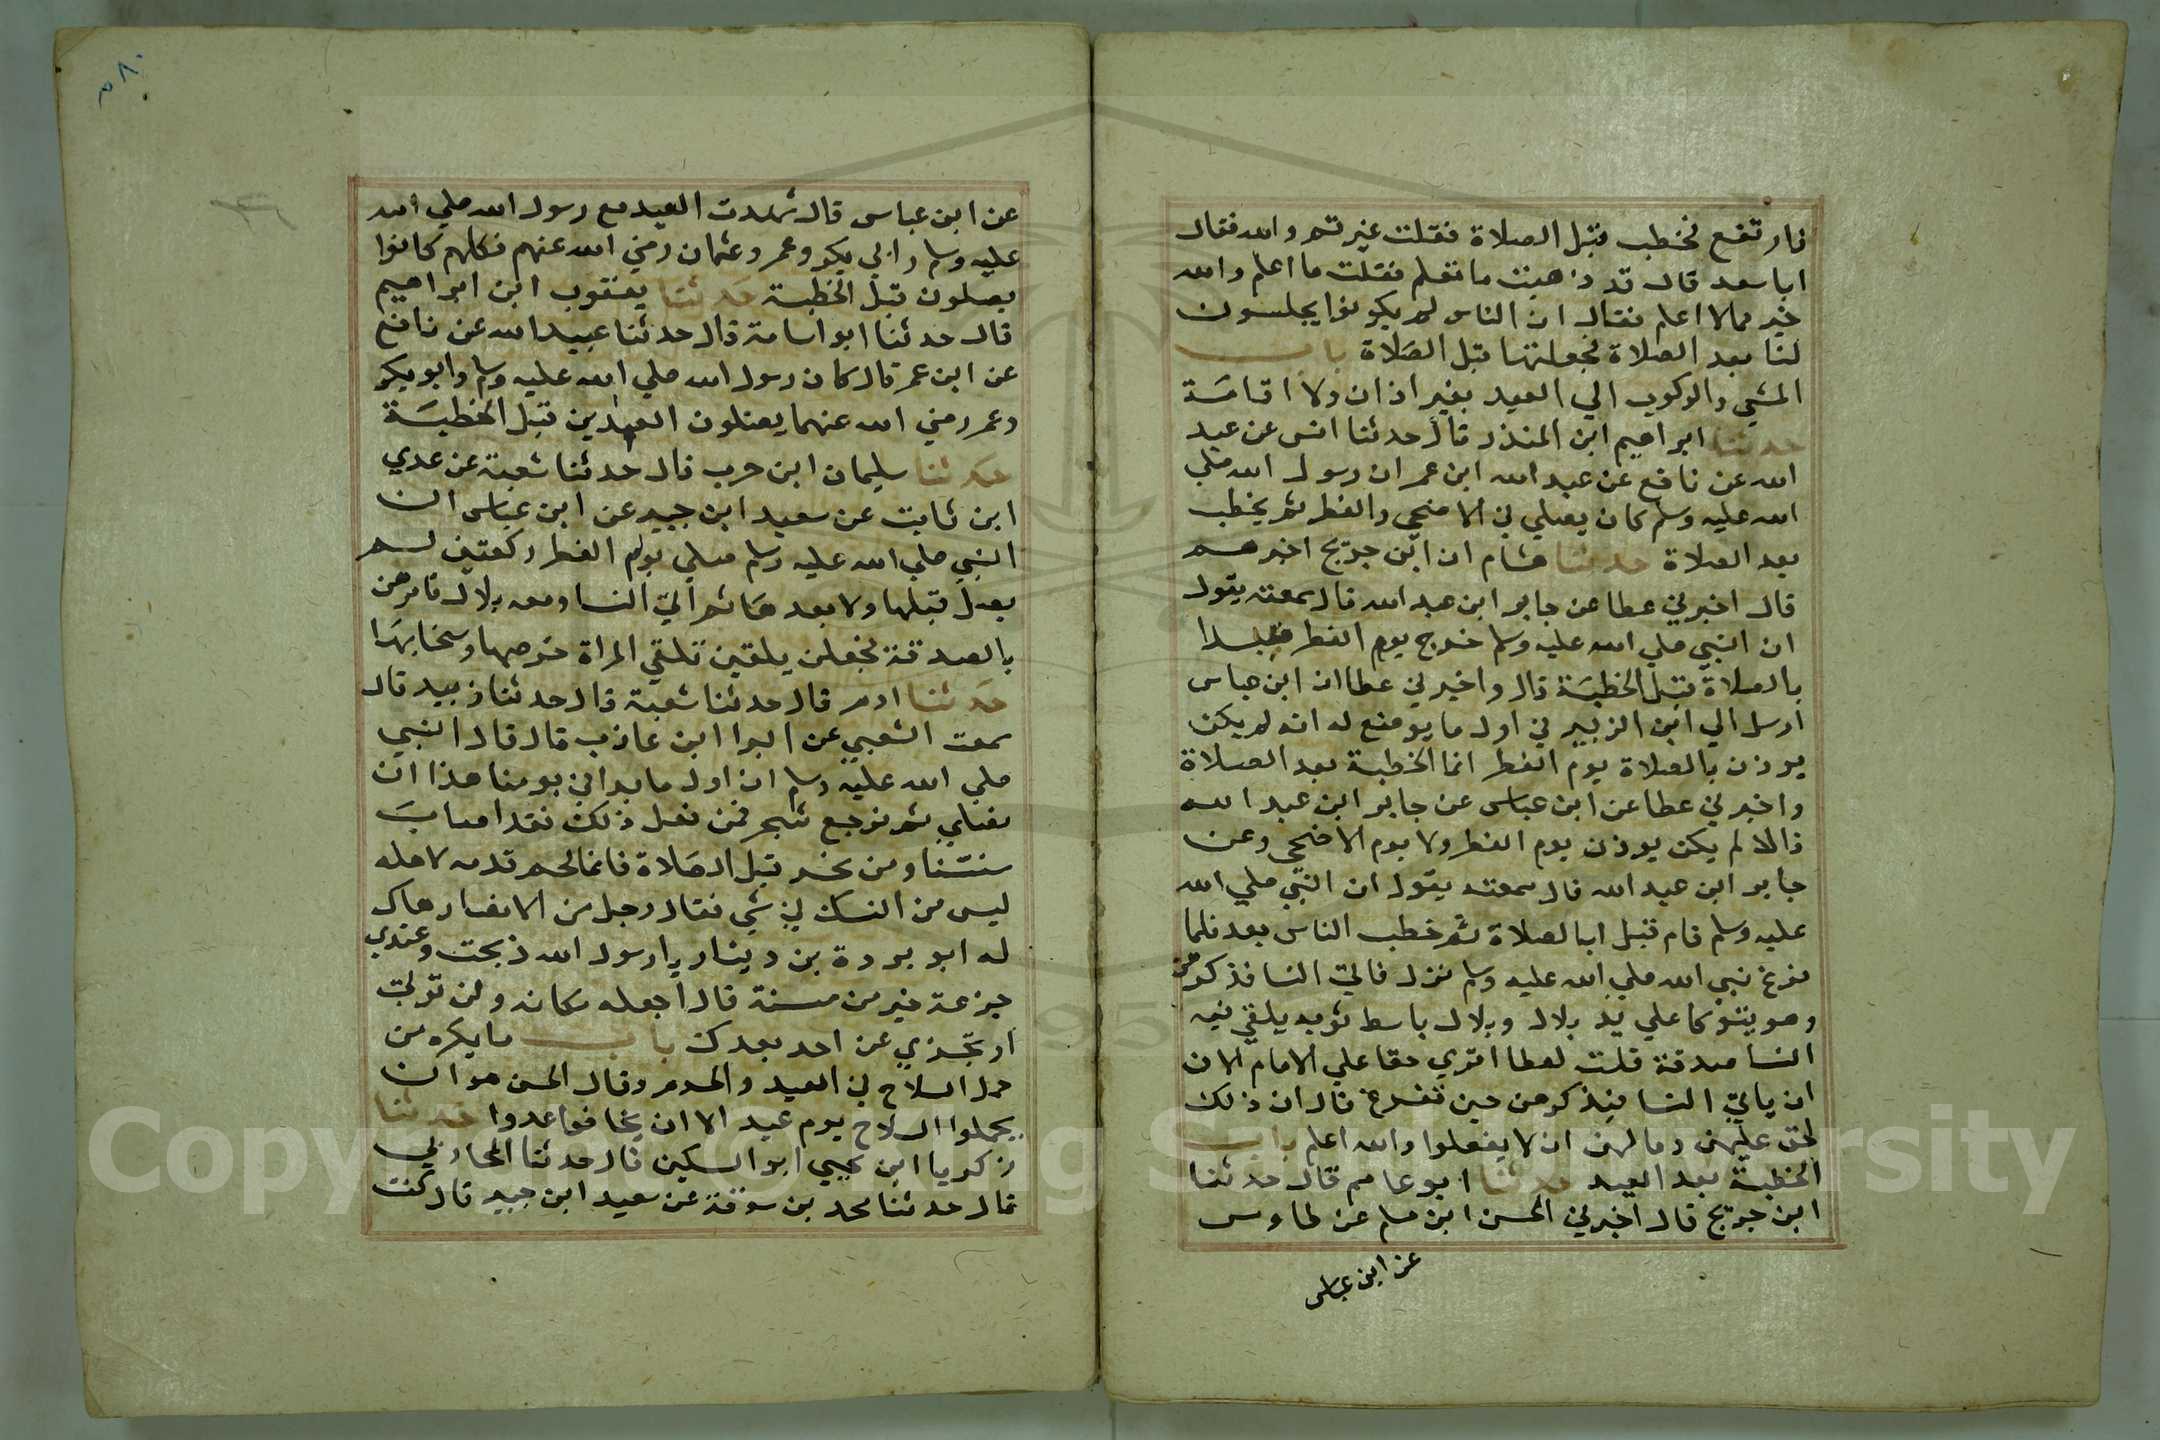 فارتفع فخطب قبل الصلاة فقلت غيرتم والله فقال
ابا سعد قال قد ذهبت ما تعلم فقلت ما اعلم والله
خير مما لا اعلم فقال ان الناس لم يكونوا يجلسون
لنا بعد الصلاة فجعلتها قبل الصلاة باب
المشي والركوب الي العيد بغير اذان ولا اقامة
حدثنا ابراهيم ابن المنذر قال حدثنا انس عن عبد
الله عن نافع عن عبد الله ابن عمر ان رسول الله صلي
الله عليه وسلم كان يصلي في الاضحي والفطر ثم يخطب
بعد الصلاة حدثنا هشام ان ابن جريج اخبرهم
قال اخبرني عطا عن جابر ابن عبد الله قال سمعته يقول
ان النبي صلي الله عليه وسلم خرج يوم الفطر فبدا
بالصلاة قبل الخطبة قال واخبرني عطا ان ابن عباس
ارسل الي ابن الزبير في اول ما يوضع له انه لم يكن
يوذن بالصلاة يوم الفطر انما الخطبة بعد الصلاة
واخبرني عطا عن ابن عباس عن جابر ابن عبد الله
قالا لم يكن يوذن يوم الفطر ولا يوم الاضحي وعن
جابر ابن عبد الله قال سمعته يقول ان النبي صلي الله
عليه وسلم قام قبل ابا لصلاة ثم خطب الناس بعد فلما
فرغ نبي الله صلي الله عليه وسلم نزل فاتي النسا فذكرهن
وهو يتوكا علي يد بلال وبلال باسط ثوبه يلقي فيه
النسا صدقة قلت لعطا اتري حقا علي الامام الان
ان ياتي النسا فيذكرهن حين تفرغ قال ان ذلك
لحق عليهن وما لهن ان لا يفعلوا والله اعلم باب
الخطبة بعد العيد حدثنا ابو عاصم قال حدثنا
ابن جريج قال اخبرني الحسن ابن مسلم عن طاوس
عن ابن عباس
٨٠م
عن ابن عباس قال شهدت العيد مع رسول الله صلي الله
عليه وسلم وابي بكر وعمر وعثمان رضي الله عنهم فكلهم كانوا
يصلون قبل الخطبة حدثنا يعقوب ابن ابراهيم
قال حدثنا ابو اسامة قال حدثنا عبيد الله عن نافع
عن ابن عمر قال كان رسول الله صلي الله عليه وسلم وابو بكر
وعمر رضي الله عنهما يصلون العيدين قبل الخطبة
حدثنا سليمان ابن حرب قال حدثنا شعبة عن عدي
ابن ثابت عن سعيد ابن جبير عن ابن عباس ان
النبي صلي الله عليه وسلم صلي يوم الفطر ركعتين لم
يصل قبلها ولا بعدها ثم اتي النسا ومعه بلال فامرهن
بالصدقة فجعلن يلقين تلقي المراة خرصها وسخابها
حدثنا ادم قال حدثنا شعبة قال حدثنا زبيد قال
سمعت الشعبي عن البرا ابن عازب قال قال النبي
صلي الله عليه وسلم ان اول ما نبدا في يومنا هذا ان
نصلي ثم نرجع فننحر فمن فعل ذلك فقد اصاب
سنتنا ومن نحر قبل الصلاة فانما لحم قدمه لاهله
ليس من النسك في شي فقال رجل من الانصار هاك
له ابو بردة بن دينار يا رسول الله ذبحت وعندي
جزعة خير من مسنة قال اجعله مكانه ولن توفي
او تجزي عن احد بعدك باب ما يكره من
حمل السلاح في العيد والحرم وقال الحسن هو ان
يحملوا السلاح يوم عيد الا ان يخافوا عدوا حدثنا
زكريا ابن يحيي ابو السكين قال حدثنا المحاربي
قال حدثنا محمد بن سوقة عن سعيد ابن جبير قال كنت
Copyright © King Saud University